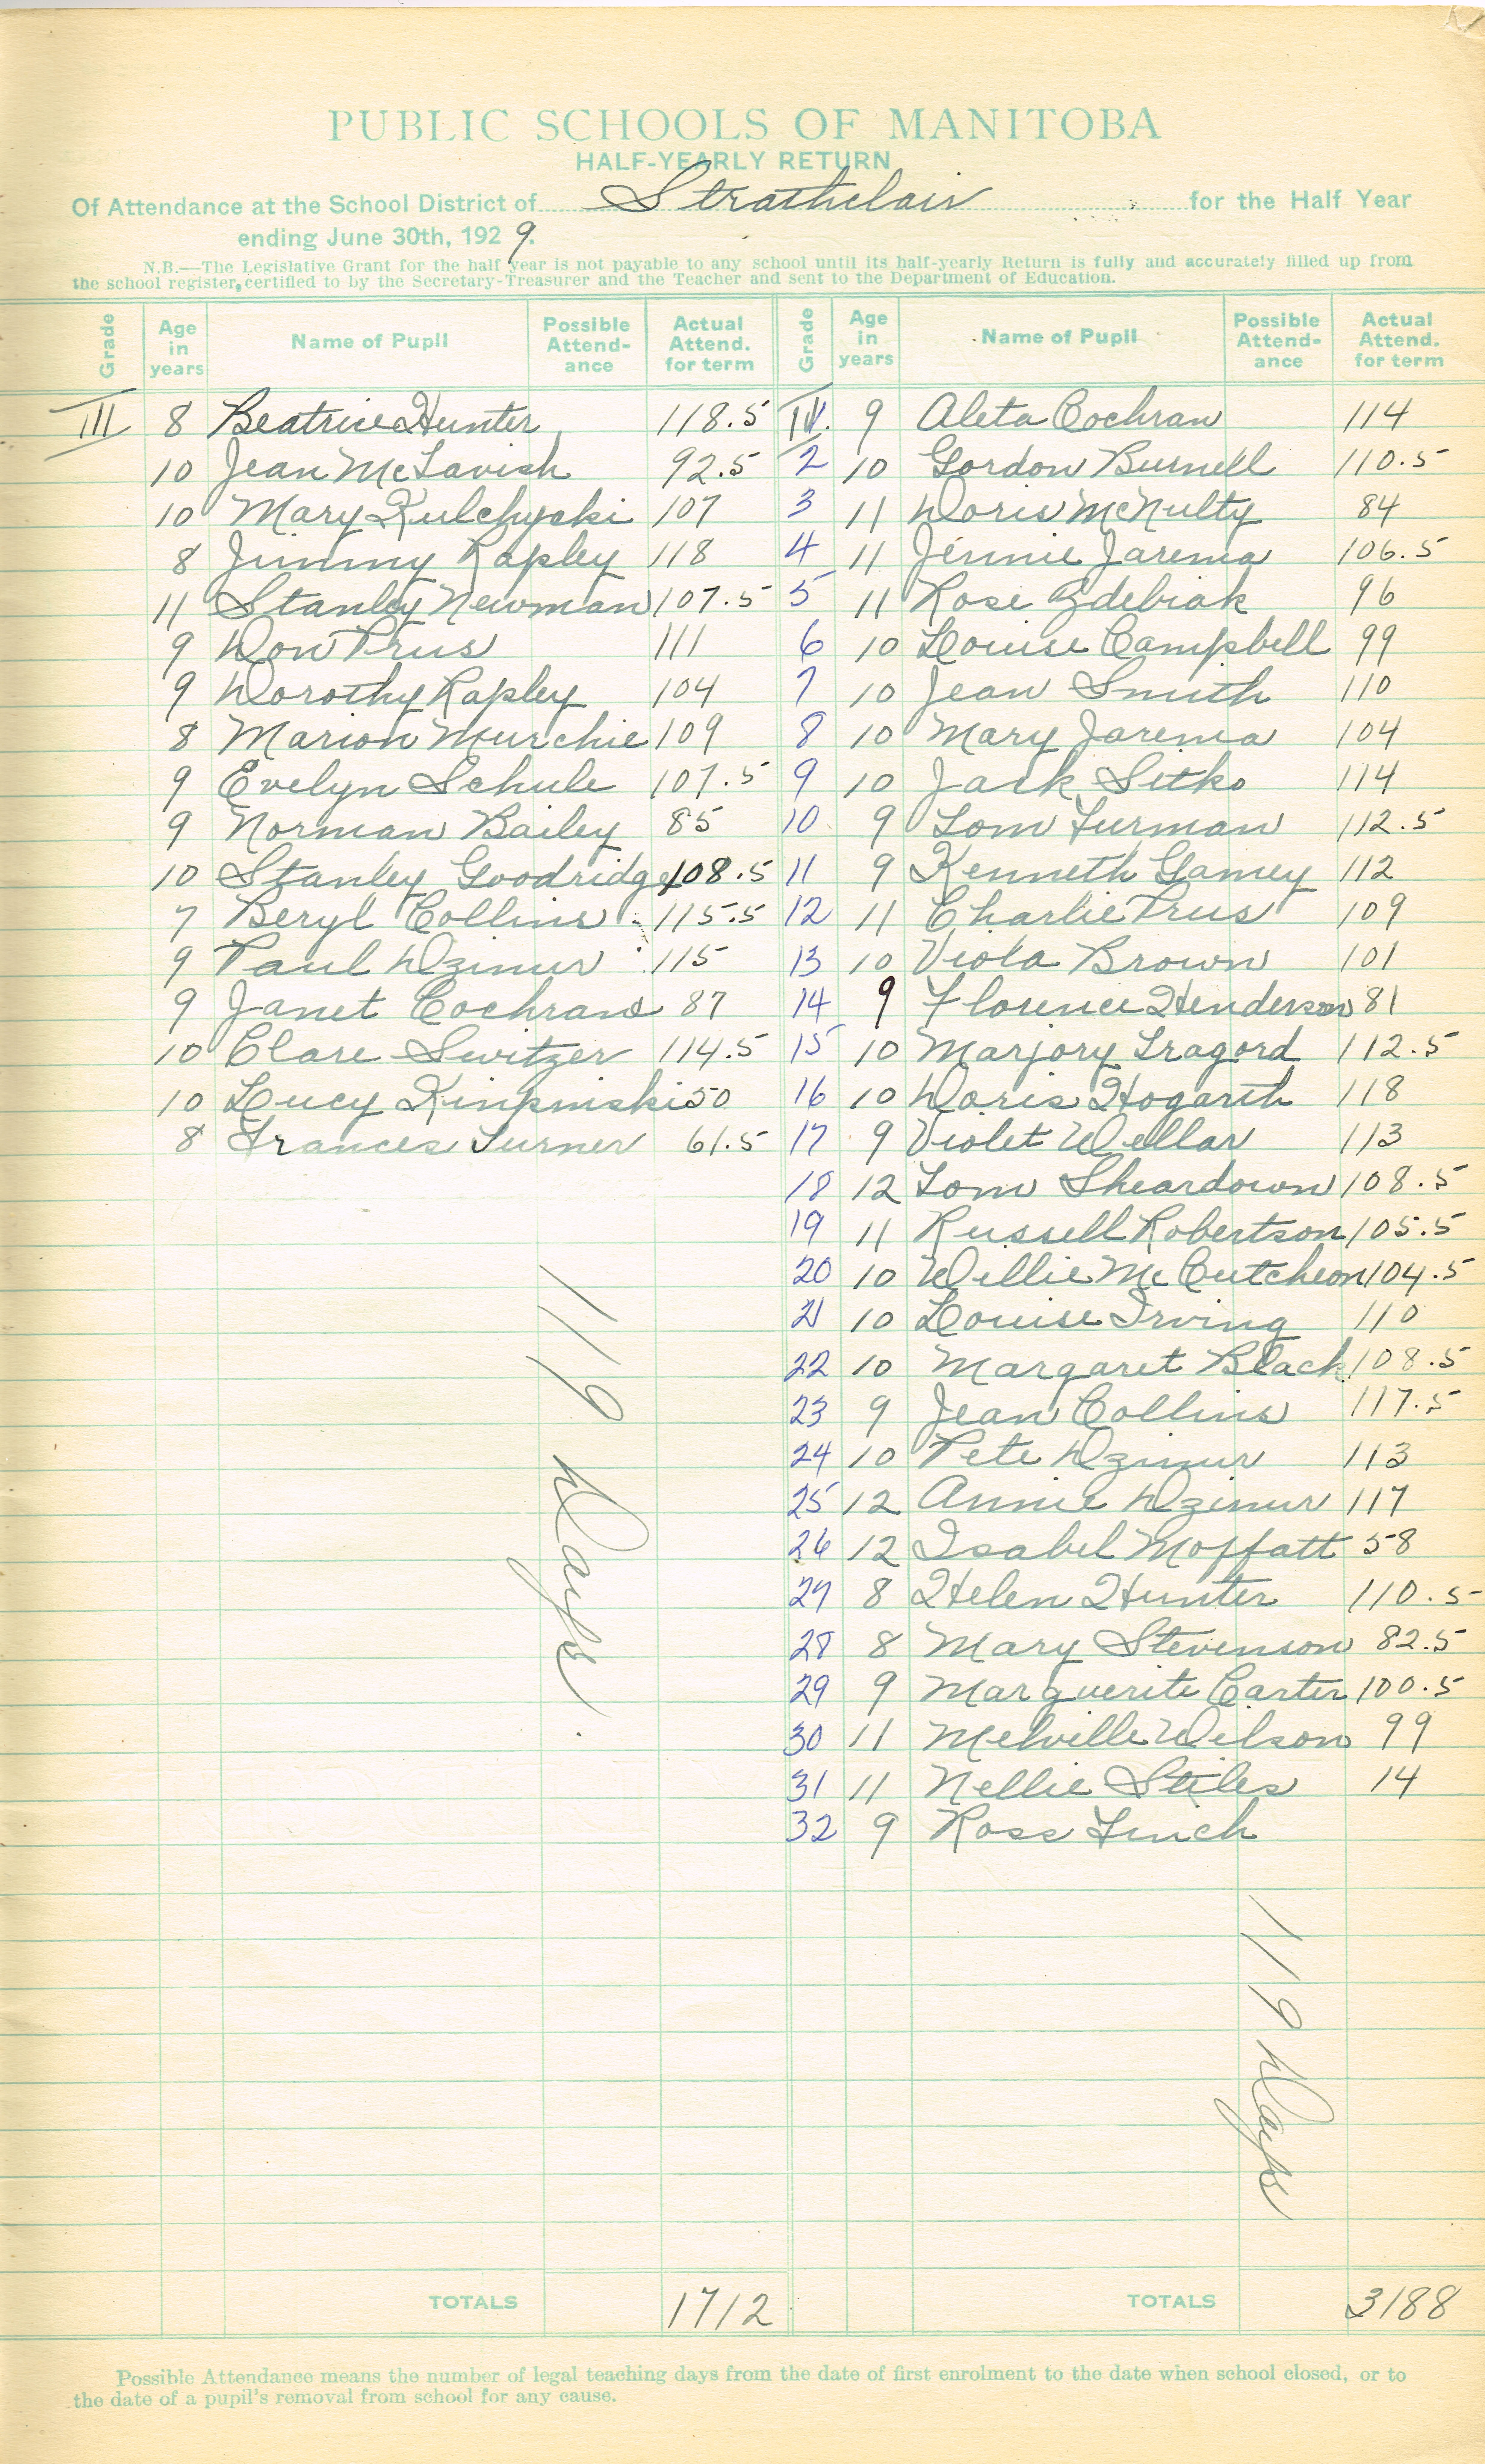 PUBLIC SCHOOLS OF MANITOBA
HALF-YEARLY RETURN
Of Attendance at the School District of Strathclair for the Half Year
ending June 30th, 1929.
N.B.—The Legislative Grant for the half year is not payable to any school until its half-yearly Return is fully and accurately filled up from
the school register, certified to by the Secretary-Treasurer and the Teacher and sent to the Department of Education.
Grade Age in years Name of Pupil Possible Attend-ance Actual Attend. for term
III 8 Beatrice Hunter 118.5
10 Jean McTavish 92.5
10 Mary Kulchycki 107
8 Jimmy Rapley 118
11 Stanley Newman 107.5
9 Don Prus 111
9 Dorothy Rapley 104
8 Marion Murchie 109
9 Evelyn Schule 107.5
9 Norman Bailey 85
10 Stanley Goodridge 108.5
7 Beryl Collins 115.5
9 Paul Dzimur 115
9 Janet Cochrane 87
10 Clare Switzer 114.5
10 Lucy 50
8 Frances Turner 61.5
119 Days.
TOTALS 1712
Grade Age in years Name of Pupil Possible Attend-ance Actual Attend. for term
IV. 9 Aleta Cochran 114
2 10 Gordon Burnell 110.5
3 11 Doris McNulty 84
4 11 Jennie Jarema 106.5
5 11 Rose Zdebiak 96
6 10 Louise Campbell 99
7 10 Jean Smith 110
8 10 Mary Jarema 104
9 10 Jack Sitko 114
10 9 Tom Turman 112.5
11 9 Kenneth Gamey 112
12 11 Charlie Prus 109
13 10 Viola Brown 101
14 9 Florence Henderson 81
15 10 Marjory Tragord 112.5
16 10 Doris Hogarth 118
17 9 Violet Wellar 113
18 12 Tom Sheardown 108.5
19 11 Russell Robertson 105.5
20 10 Willie McCutcheon 104.5
21 10 Louise Irving 110
22 10 Margaret Black 108.5
23 9 Jean Collins 117.5
24 10 Pete Dzimur 113
25 12 Annie Dzimur 117
26 12 Isabel Moffatt 58
27 8 Helen Hunter 110.5
28 8 Mary Stevenson 82.5
29 9 Marguerite Carter 100.5
30 11 Melville Wilson 99
31 11 Nellie Stiles 14
32 9 Ross Finch
119 Days
TOTALS 3188
Possible Attendance means the number of legal teaching days from the date of first enrolment to the date when school closed, or to
the date of a pupil's removal from school for any cause.